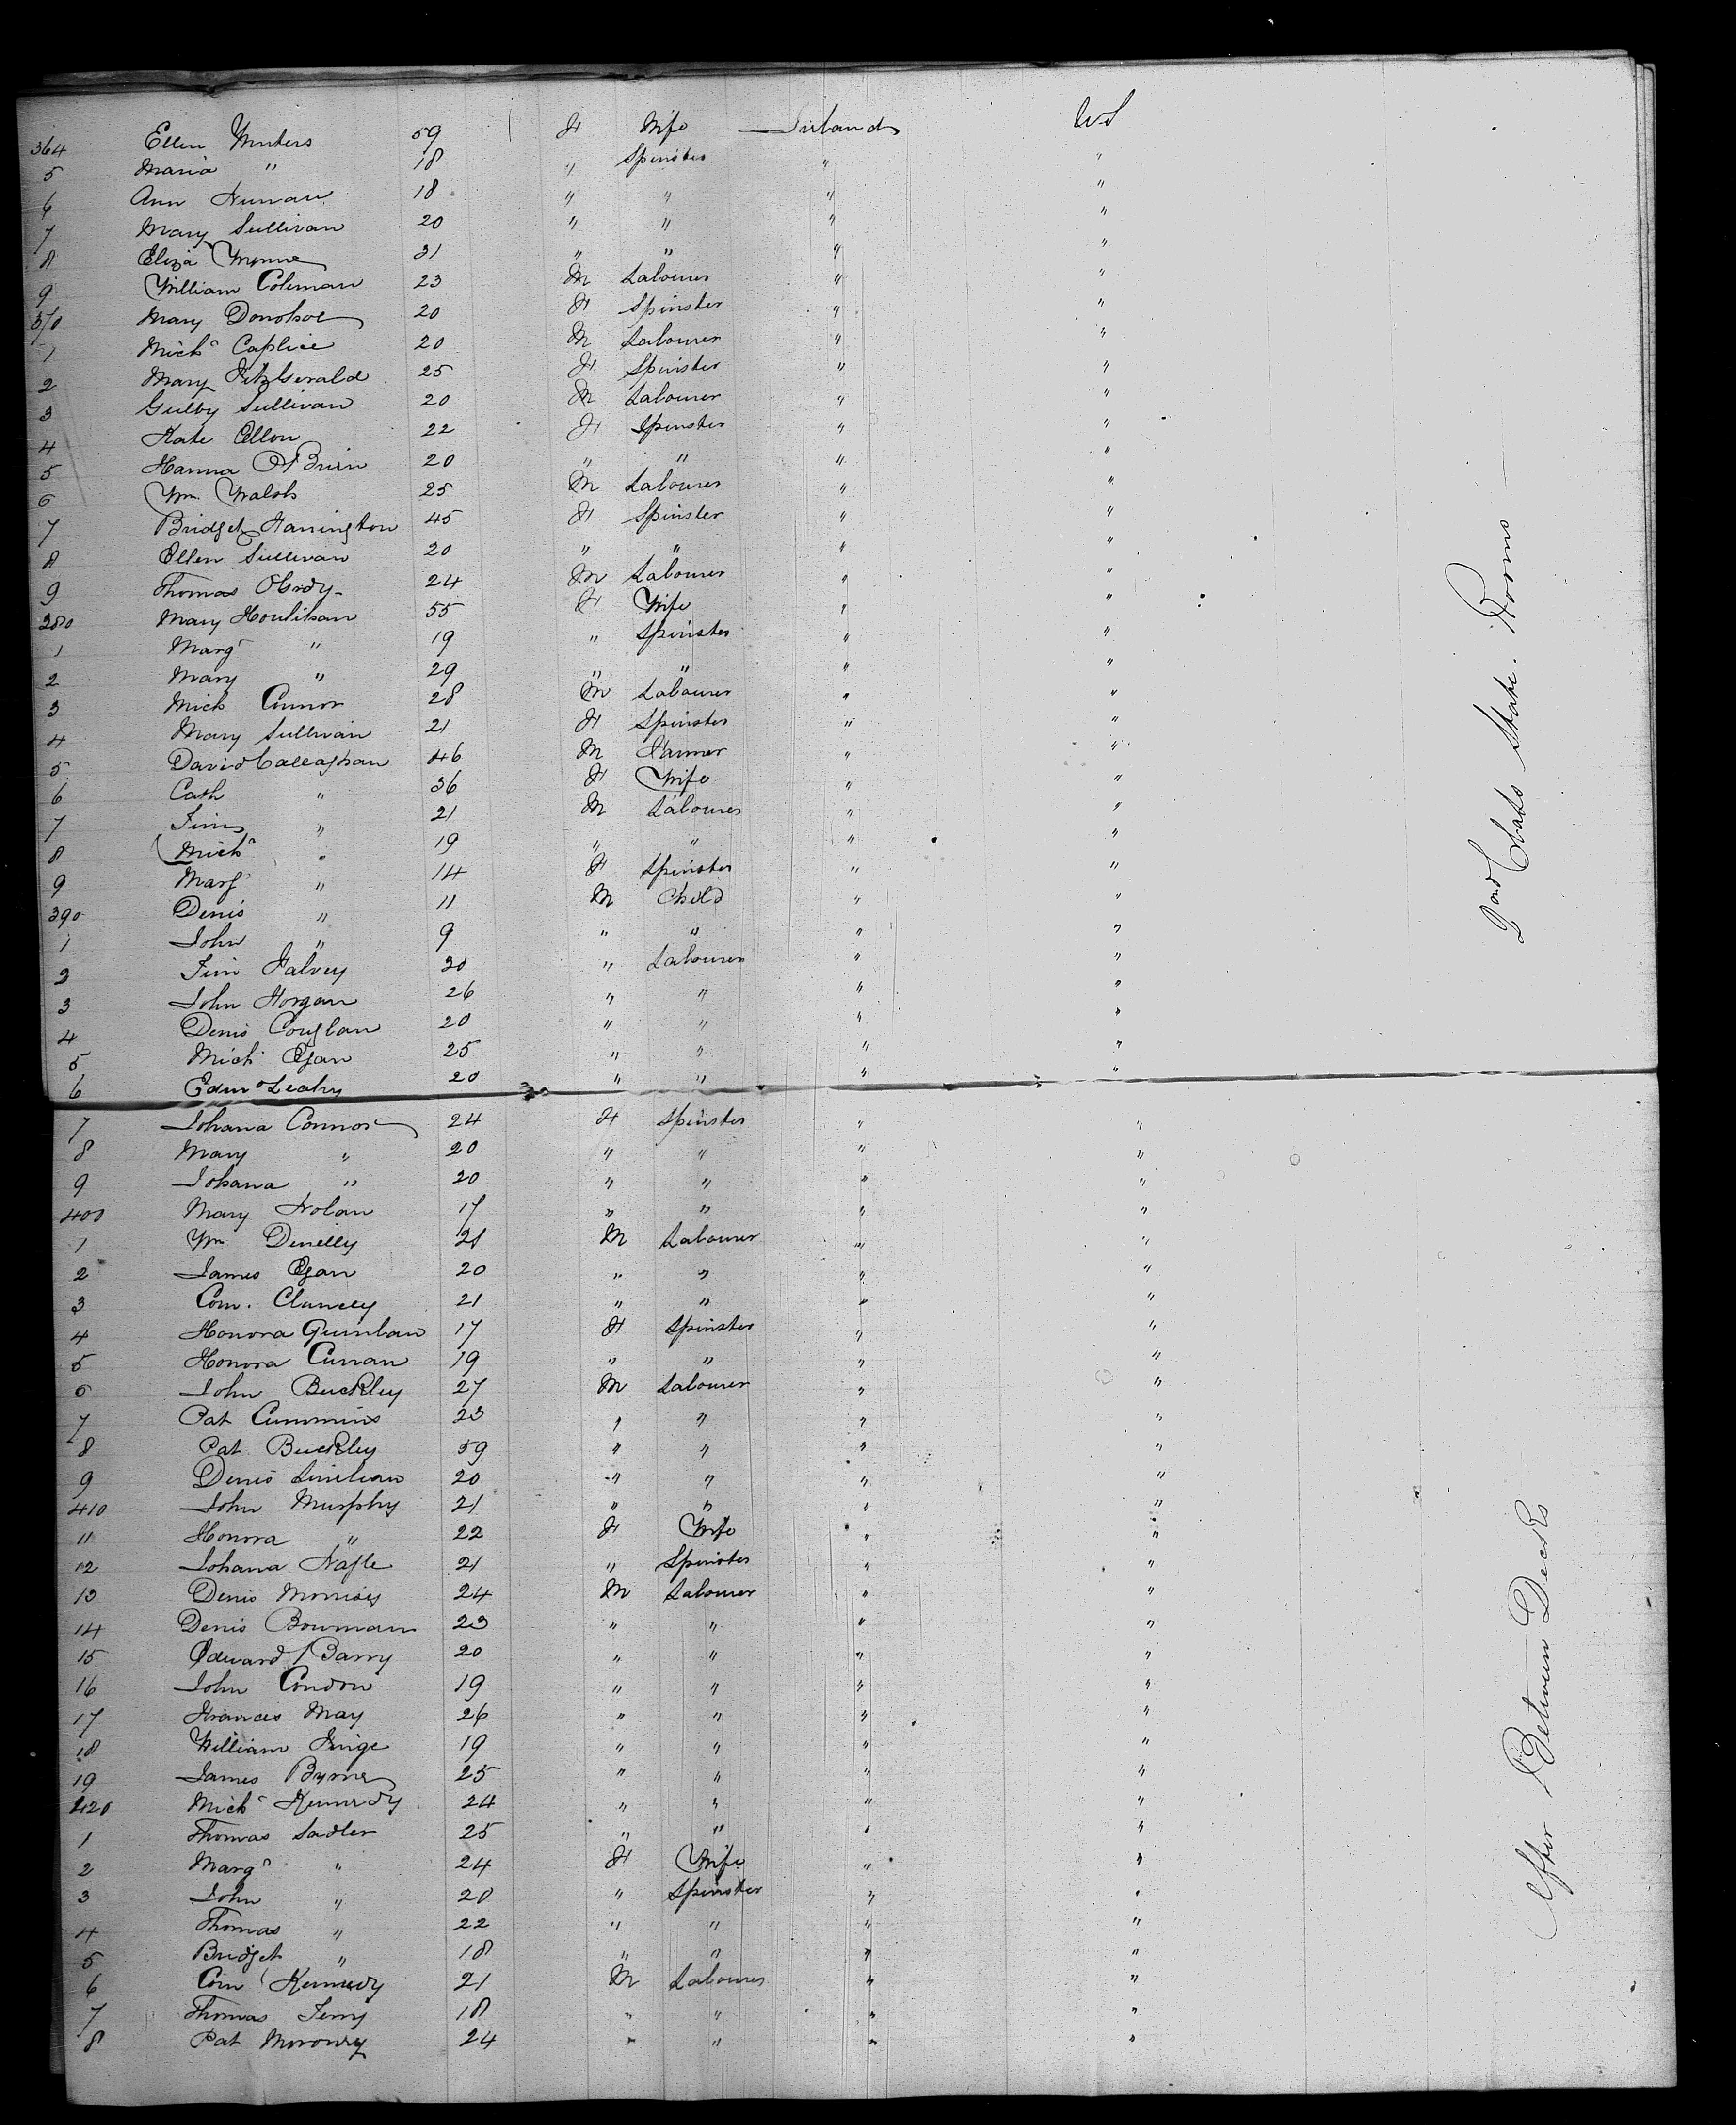 364 Ellen Winters 59 F Wife Ireland US
5 Maria " 18 " Spinster " "
6 Ann Nunan 18 " " " "
7 Mary Sullivan 20 " " " "
8 Eliza Wynne 31 " " " "
9 William Coleman 23 M Labourer " "
370 Mary Donohoe 20 F Spinster " "
1 Mich Caplice 20 M Labourer " "
2 Mary FitzGerald 25 F Spinster " "
3 Sullivan 20 M Labourer " "
4 Kate 22 F Spinster " "
5 Hanna O'Brien 20 " " " "
6 Wm. Walsh 25 M Labourer " "
7 Bridget Harrington 45 F Spinster " "
8 Ellen Sullivan 20 " " " "
9 Thomas 24 M Labourer " "
380 Mary Houlihan 55 F Wife " "
1 Marg " 19 " Spinster " "
2 Mary " 29 " " " "
3 Mich Connor 28 M Labourer " "
4 Mary Sullivan 21 F Spinster " "
5 David Callaghan 46 M Farmer " "
6 Cath " 36 F Wife " "
7 Tim " 21 M Labourer " "
8 Mich " 19 " " " "
9 Marg " 14 F Spinster " "
390 Denis " 11 M Child " "
1 John " 9 " " " "
2 Tim Falvey 20 " Labourer " "
3 John Horgan 26 " " " "
4 Denis Couglan 20 " " " "
5 Mich Egan 25 " " " "
6 Edmd Leahy 20 " " " "
7 Johana Connor 24 F Spinster " "
8 Mary " 20 " " " "
9 Johana " 20 " " " "
400 Mary Nolan 17 " " " "
1 Wm Denelly 21 M Labourer " "
2 James Egan 20 " " " "
3 Corn. Clancey 21 " " " "
4 Honora Quinlan 17 F Spinster " "
5 Honora Curran 19 " " " "
6 John Buckley 27 M Labourer " "
7 Pat Cummins 23 " " " "
8 Pat Buckley 59 " " " "
9 Denis Linehan 20 " " " "
410 John Murphy 21 " " " "
11 Honora " 22 F Wife " "
12 Johana Nagle 21 " Spinster " "
13 Denis Morrisey 24 M Labourer " "
14 Denis Bowman 23 " " " "
15 Edward Barry 20 " " " "
16 John Condon 19 " " " "
17 Frances May 26 " " " "
18 William 19 " " " "
19 James Byrne 25 " " " "
420 Mich Kennedy 24 " " " "
1 Thomas Sadler 25 " " " "
2 Marg " 24 F Wife " "
3 John " 20 " Spinster " "
4 Thomas " 22 " " " "
5 Bridget " 18 " " " "
6 Corn Kennedy 21 M Labourer " "
7 Thomas Terry 18 " " " "
8 Pat Moroney 24 " " " "
2nd Class State Rooms
After Between Decks